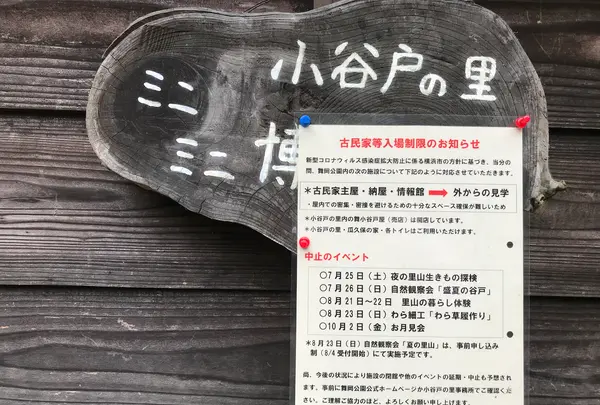 小谷戸の里
ミニ
ミニ 博
古民家等入場制限のお知らせ
新型コロナウィルス感染症拡大防止に係る横浜市の方針に基づき、当分の
間、舞岡公園内の次の施設について下記のように対応させていただきます。
*古民家主屋・納屋・情報館 ➡ 外からの見学
・屋内での密集・密接を避けるための十分なスペース確保が難しいため
*小谷戸の里内の舞小谷戸屋(売店)は開店しています。
*小谷戸の里・瓜久保の家・各トイレはご利用いただけます。
中止のイベント
○7月25日(土)夜の里山生きもの探検
○7月26日(日)自然観察会「盛夏の谷戸」
○8月21日~22日 里山の暮らし体験
○8月23日(日)わら細工「わら草履作り」
○10月2日(金)お月見会
*8月23日(日)自然観察会「夏の里山」は、事前申し込み
制(8/4受付開始)にて実施予定です。
尚、今後の状況により施設の閉館や他のイベントの延期・中止も予想されます
。事前に舞岡公園公式ホームページか小谷戸の里事務所でご確認くだ
さい。ご理解ご協力のほど、よろしくお願い申し上げます。